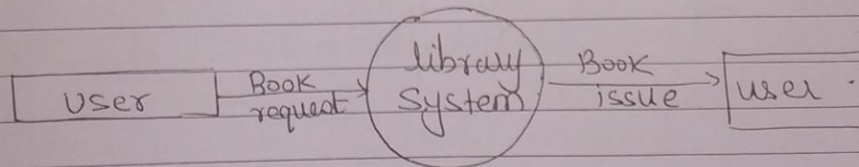 User
Book
request
library
System
Book
issue
user